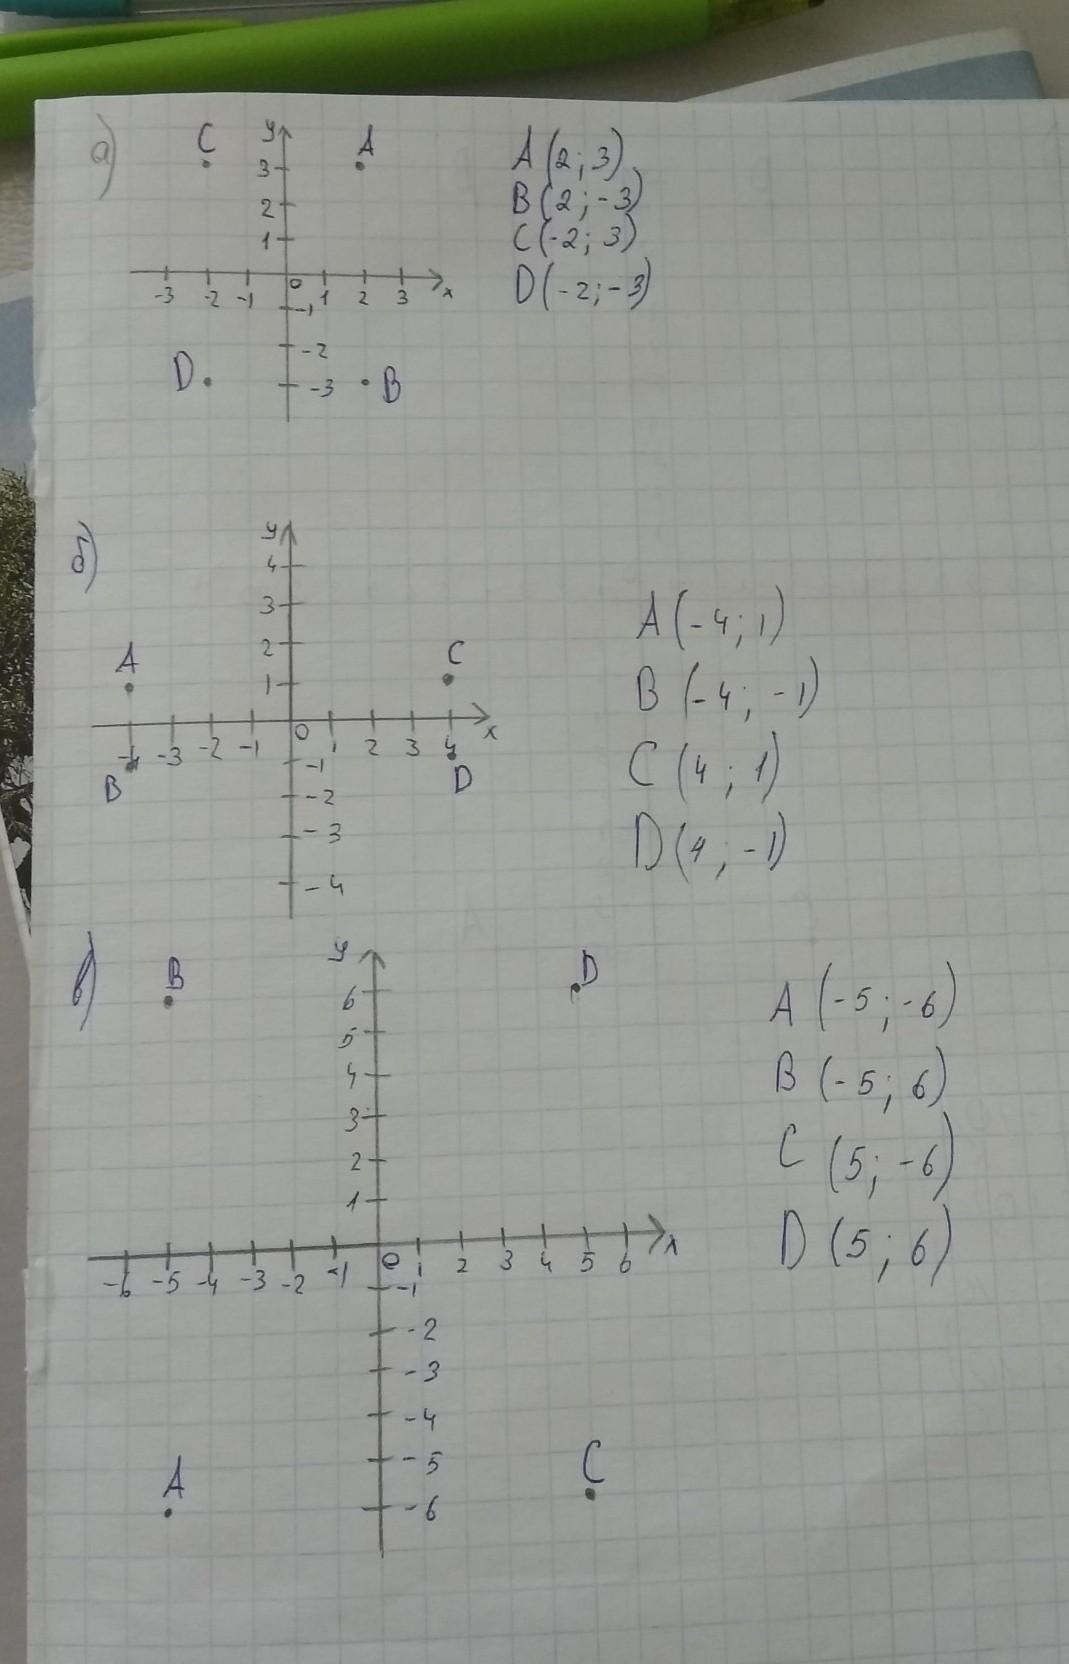 а)
C
y
A
3
2
1
-3 -2 -1 0 1 2 3 x
-1
-2
D
-3
B
A(2; 3)
B(2; -3)
C(-2; 3)
D(-2; -3)
б)
y
4
3
2
A
C
1
-4 -3 -2 -1 0 1 2 3 4 x
B
-1
D
-2
-3
-4
A(-4; 1)
B (-4; -1)
C (4; 1)
D(4; -1)
в)
B
y
D
6
5
4
3
2
1
-6 -5 -4 -3 -2 -1 0 1 2 3 4 5 6 x
-1
-2
-3
-4
-5
A
C
-6
A (-5; -6)
B (-5; 6)
C (5; -6)
D (5; 6)